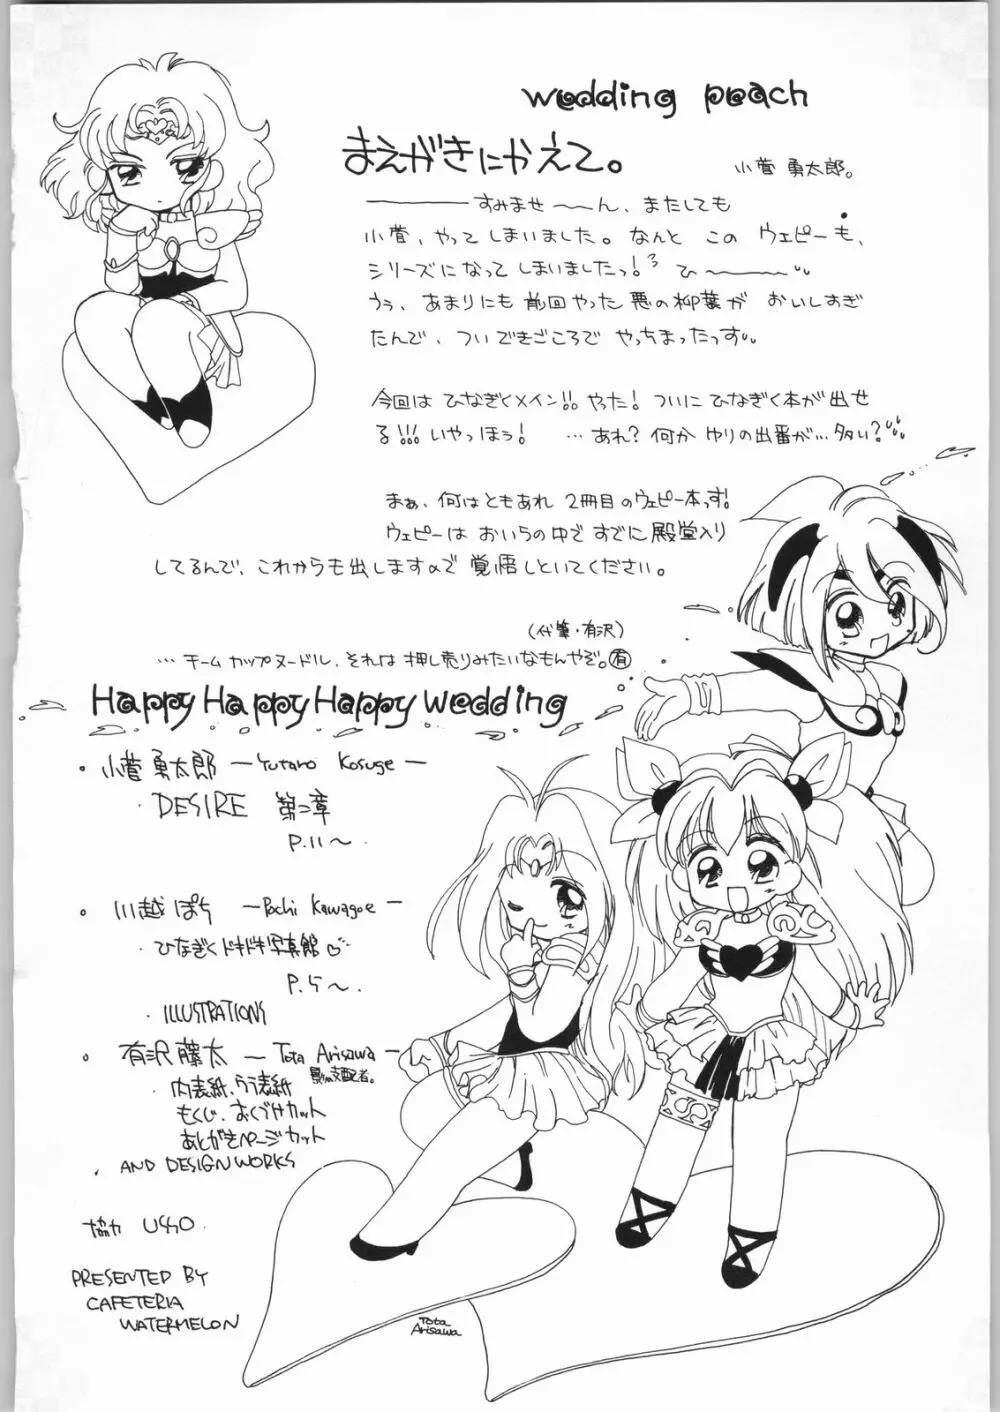 wedding peach
まえがきにかえて。
小菅 勇太郎。
――――すみませ〜〜ん、またしても
小菅、やってしまいました。なんと この ウェピーも、
シリーズになってしまいましたっ! ひ〜〜〜〜
うぅ、あまりにも 前回やった 悪の柳葉が おいしすぎ
たんで、ついできごころで やっちまったっす
今回は ひなぎくメイン!! やった! ついに ひなぎく本が出せ
る!!! いやっほぅ! …あれ? 何か ゆりの出番が…多い?
まぁ、何はともあれ 2冊目のウェピー本っす!
ウェピーは おいらの中で すでに 殿堂入り
してるんで、これからも出しますので 覚悟しといてください。
(代筆・有沢)
…チームカップヌードル、それは 押し売りみたいなもんやぞ。有
Happy Happy Happy wedding
・小菅 勇太郎 ― Yutaro Kosuge ―
・DESIRE 第二章
P.11〜.
・川越 ぽち ― Pochi Kawagoe ―
・ひなぎく ドキドキ写真館♡
P.5〜.
・ILLUSTRATIONS
・有沢 藤太 ― Tota Arisawa ―
影の支配者。
・内表紙、うら表紙
もくじ、おくづけカット
あとがきページカット
. AND DESIGN WORKS
協力
PRESENTED BY
CAFETERIA
WATERMELON
Tota
Arisawa